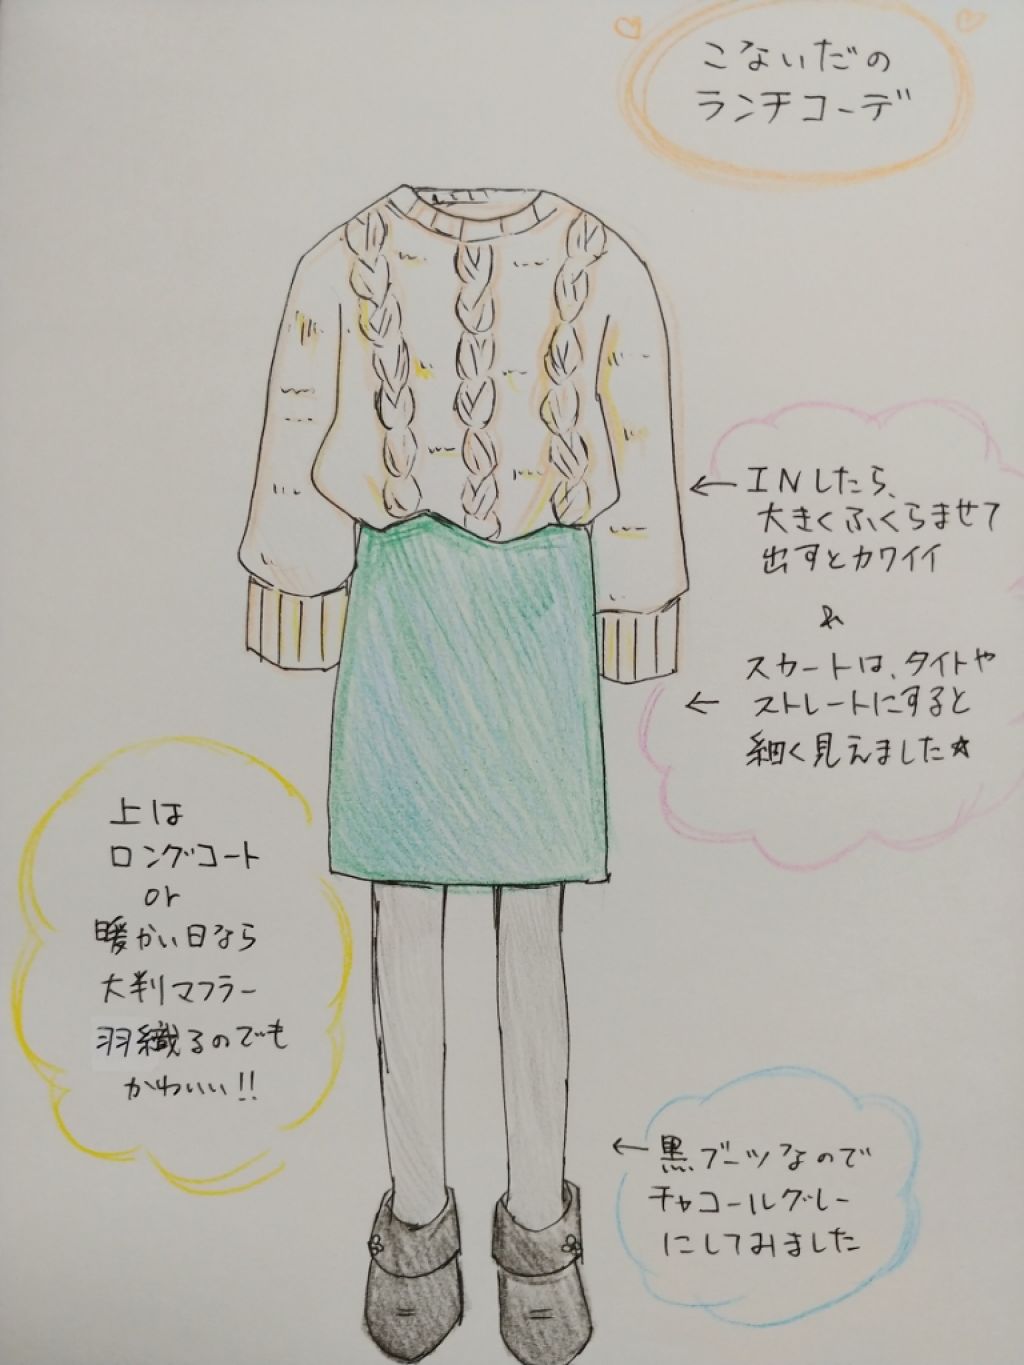 こないだの
ランチコーデ
←INしたら、
大きくふくらませて
出すとカワイイ
&
スカートは、タイトや
← ストレートにすると
細く見えました☆
上は
ロングコート
or
暖かい日なら
大判マフラー
羽織るのでも
かわいい!!
←黒ブーツなので
チャコールグレー
にしてみました